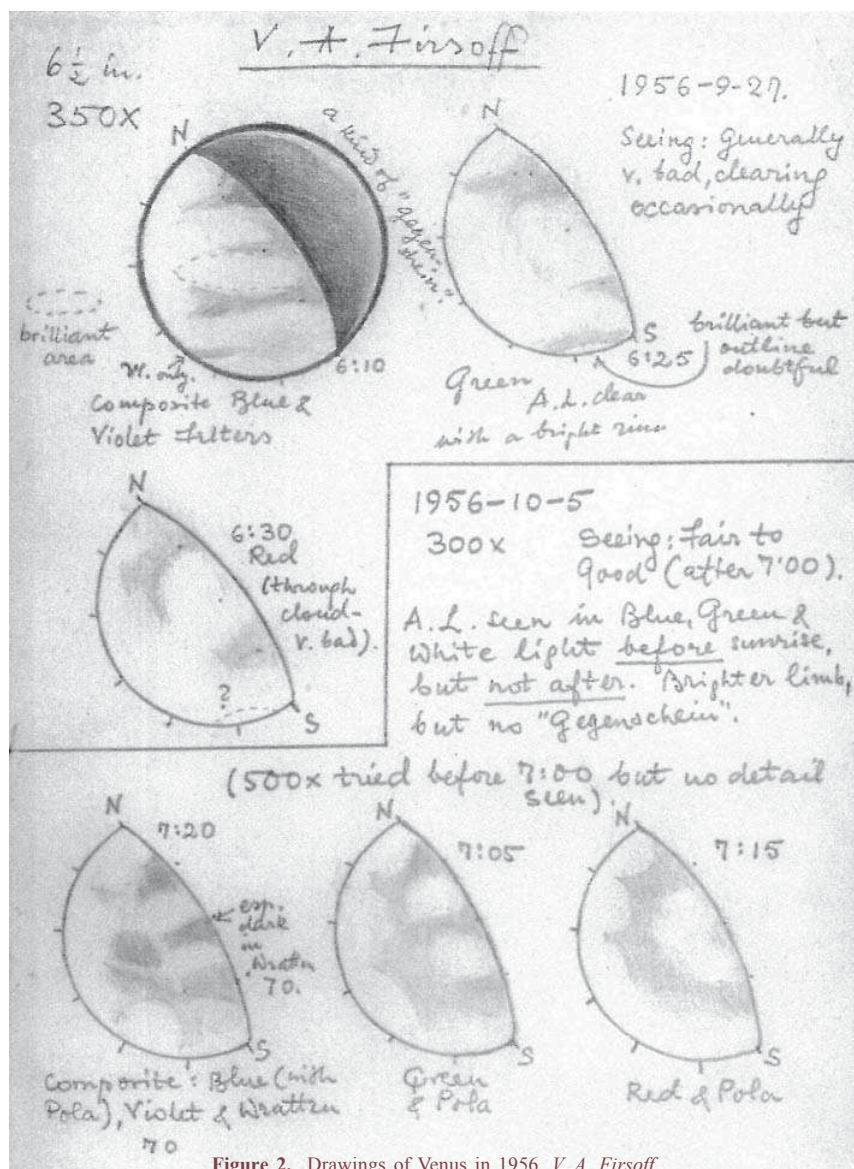 V. A. Firsoff
6½ in.
350X
1956-9-27.
Seeing: Generally
v. bad, clearing
occasionally
N
a kind of "gegen-
schein"
brilliant
area
6:10
Composite Blue &
Violet Filters
N
S
6:25
brilliant but
outline
doubtful
Green
A.L. clear
with a bright rim
N
6:30
Red
(through
cloud-
v. bad).
?
S
1956-10-5
300x
Seeing: Fair to
Good (after 7:00).
A.L. seen in Blue, Green &
White light before sunrise,
but not after. Brighter limb,
but no "Gegenschein".
(500x tried before 7:00 but no detail
seen).
N
7:20
esp.
dark
in
Wratten
70.
S
Composite: Blue (with
Pola), Violet & Wratten
70
N
7:05
S
Green
& Pola
N
7:15
S
Red & Pola
Figure 2. Drawings of Venus in 1956. V. A. Firsoff